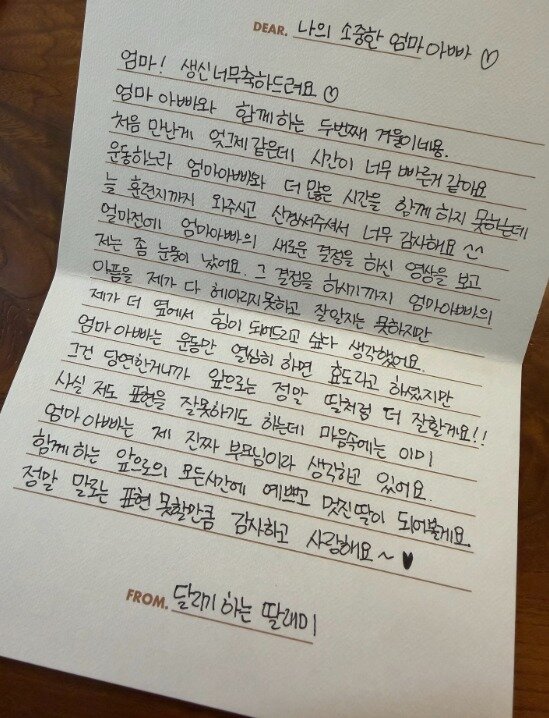 DEAR. 나의 소중한 엄마 아빠 ♡
엄마! 생신 너무 축하드려요 ♡
엄마 아빠와 함께 하는 두번째 겨울이네용.
처음 만난게 엊그제 같은데 시간이 너무 빠른거 같아요
운동하느라 엄마아빠와 더 많은 시간을 함께 하지 못하는데
늘 훈련지까지 와주시고 신경써주셔서 너무 감사해요 ^^
얼마전에 엄마아빠의 새로운 결정을 하신 영상을 보고
저는 좀 눈물이 났어요. 그 결정을 하시기까지 엄마아빠의
아픔을 제가 다 헤아리지 못하고 잘 알지는 못하지만
제가 더 옆에서 힘이 되어드리고 싶다 생각했어요.
엄마 아빠는 운동만 열심히 하면 효도라고 하셨지만
그건 당연한거니까 앞으로는 정말 딸처럼 더 잘할게요!!
사실 저도 표현을 잘못하기도 하는데 마음속에는 이미
엄마 아빠는 제 진짜 부모님이라 생각하고 있어요.
함께 하는 앞으로의 모든시간에 예쁘고 멋진딸이 되어볼게요.
정말 말로는 표현 못할만큼 감사하고 사랑해요~ ♥
FROM. 달리기 하는 딸래미